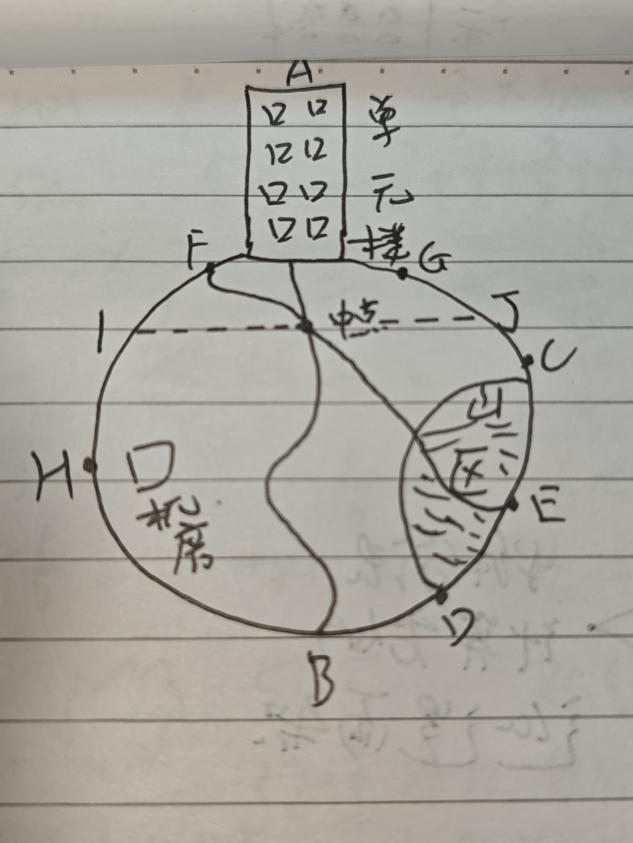 A
单
元
楼
F
G
I
中点
J
C
山
区
H
机房
E
D
B